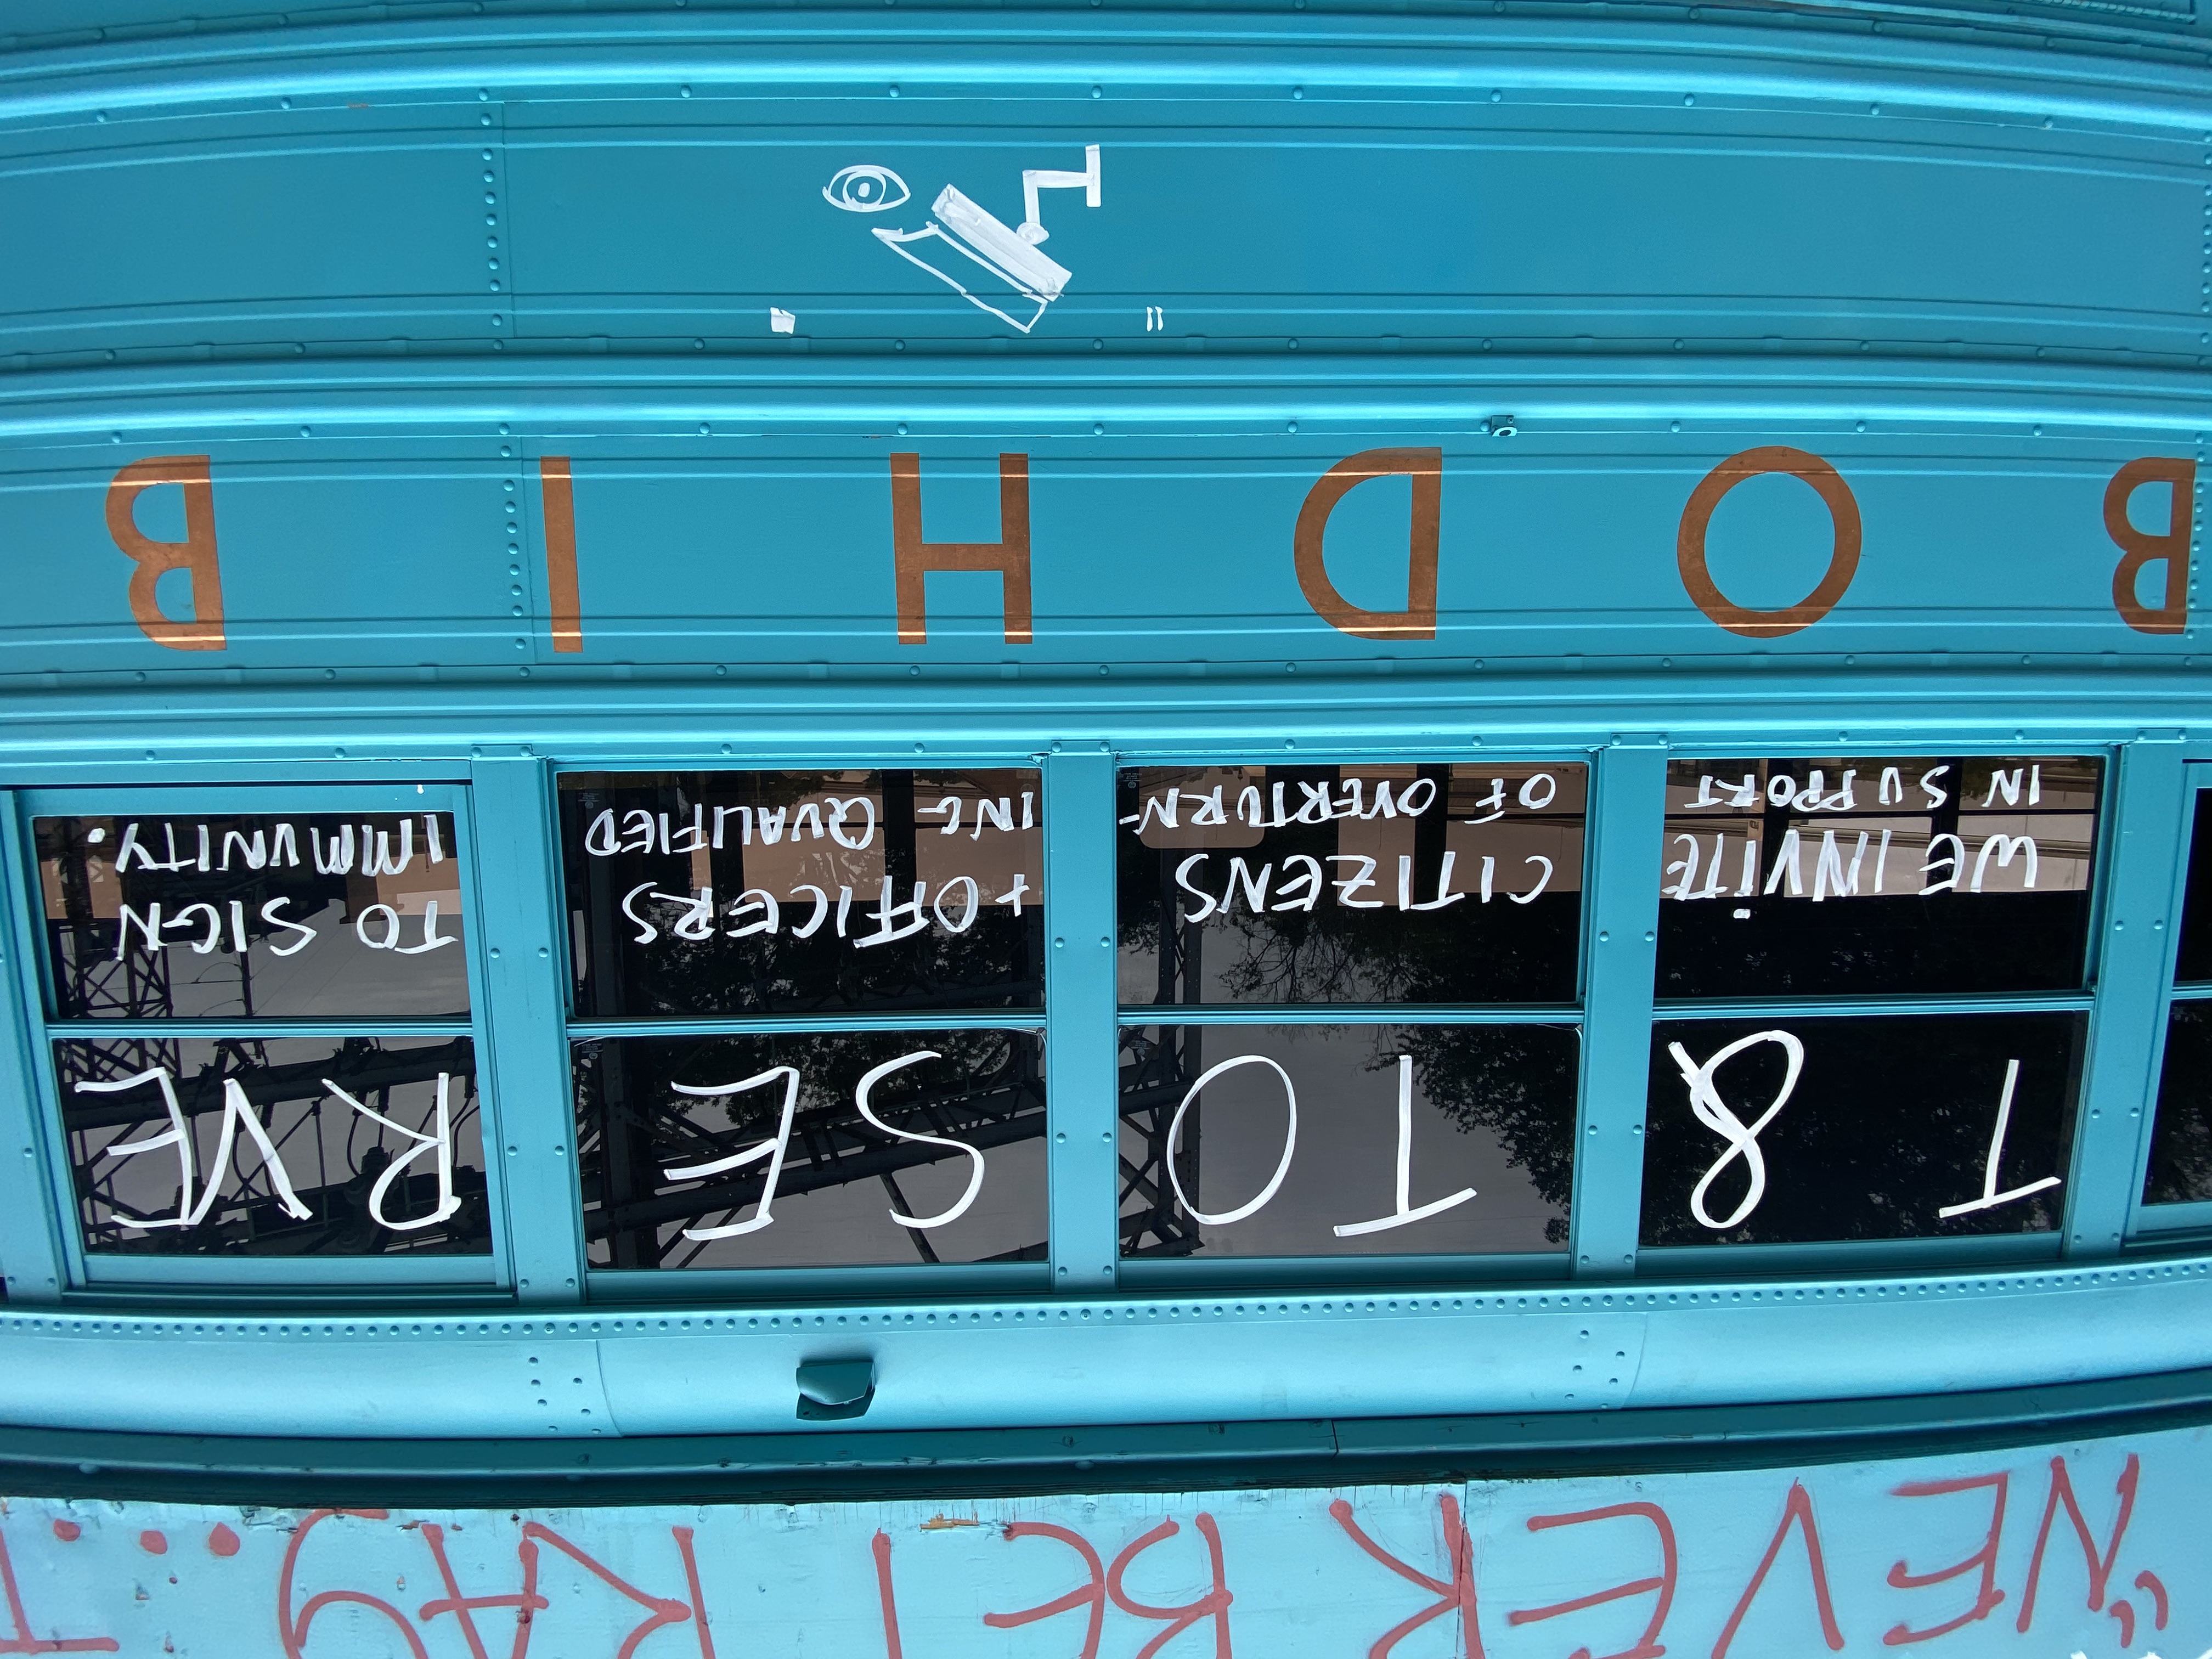 "NEVER BETRAY... T
T & TO SERVE
WE INVITE CITIZENS + OFFICERS TO SIGN
IN SUPPORT OF OVERTURN-ING QUALIFIED IMMUNITY.
BODHI B